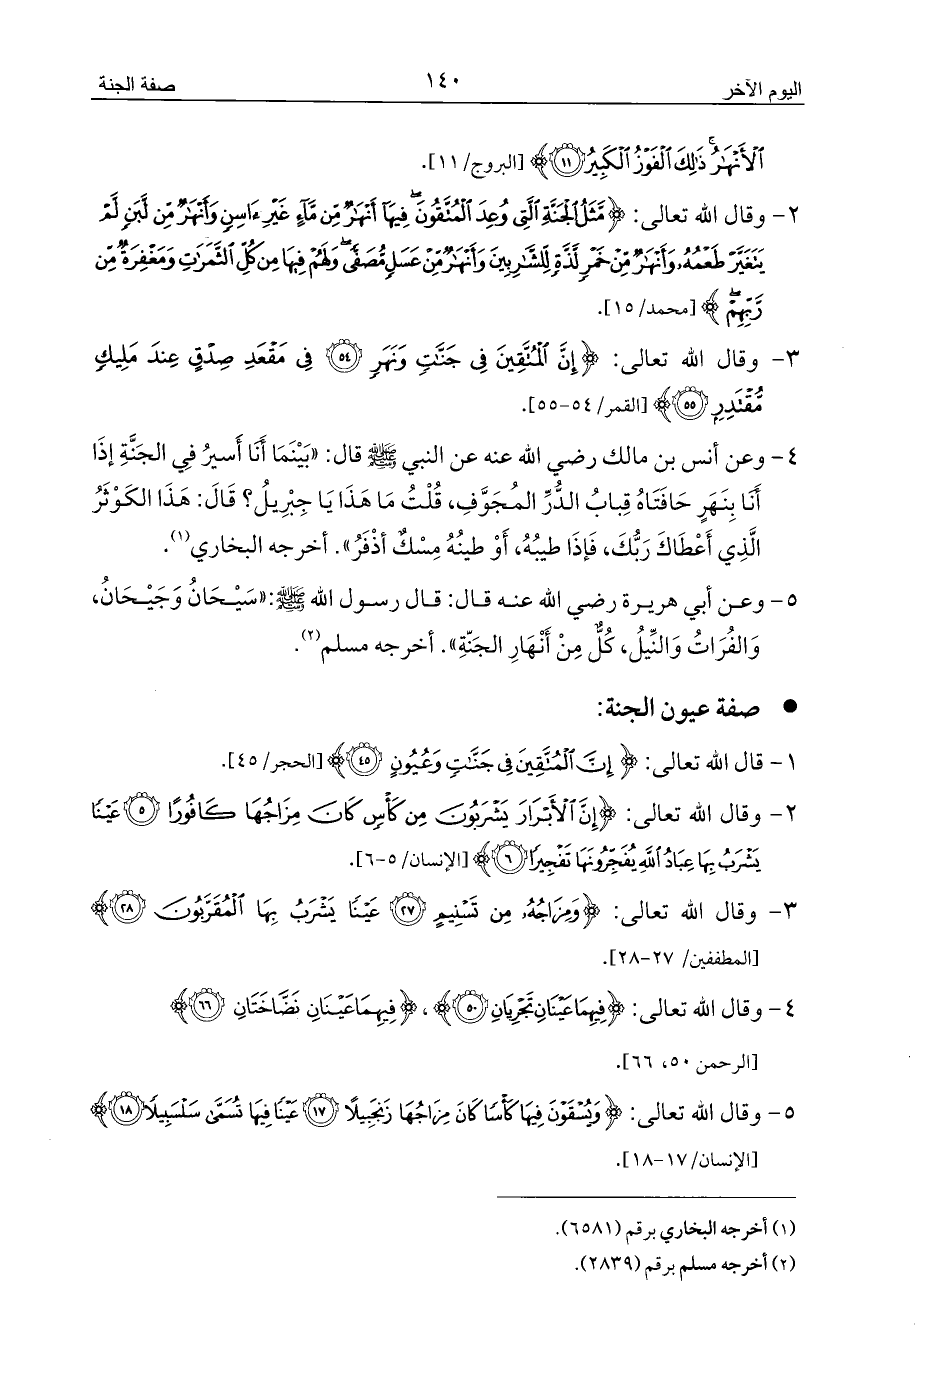 اليوم الآخر ١٤٠ صفة الجنة
ٱلْأَنْهَٰرُ ۚ ذَٰلِكَ ٱلْفَوْزُ ٱلْكَبِيرُ ۝١١ ﴾ [البروج/ ١١].
٢- وقال الله تعالى: ﴿ مَّثَلُ ٱلْجَنَّةِ ٱلَّتِى وُعِدَ ٱلْمُتَّقُونَ ۖ فِيهَآ أَنْهَٰرٌ مِّن مَّآءٍ غَيْرِ ءَاسِنٍ وَأَنْهَٰرٌ مِّن لَّبَنٍ لَّمْ
يَتَغَيَّرْ طَعْمُهُۥ وَأَنْهَٰرٌ مِّنْ خَمْرٍ لَّذَّةٍ لِّلشَّٰرِبِينَ وَأَنْهَٰرٌ مِّنْ عَسَلٍ مُّصَفًّى ۖ وَلَهُمْ فِيهَا مِن كُلِّ ٱلثَّمَرَٰتِ وَمَغْفِرَةٌ مِّن
رَّبِّهِمْ ۖ ﴾ [محمد/ ١٥].
٣- وقال الله تعالى: ﴿ إِنَّ ٱلْمُتَّقِينَ فِى جَنَّٰتٍ وَنَهَرٍ ۝٥٤ فِى مَقْعَدِ صِدْقٍ عِندَ مَلِيكٍ
مُّقْتَدِرٍۭ ۝٥٥ ﴾ [القمر/ ٥٤-٥٥].
٤- وعن أنس بن مالك رضي الله عنه عن النبي ﷺ قال: «بَيْنَمَا أَنَا أَسيرُ في الجَنَّةِ إذَا
أَنَا بِنَهَرٍ حَافَتَاهُ قِبابُ الدُّرِّ المُجَوَّفِ، قُلْتُ مَا هَذَا يَا جِبْرِيلُ؟ قَالَ: هَذَا الكَوْثَرُ
الَّذِي أَعْطَاكَ رَبُّكَ، فَإذَا طيبُهُ، أَوْ طينُهُ مِسْكٌ أذْفَرُ». أخرجه البخاري(١).
٥- وعن أبي هريرة رضي الله عنه قال: قال رسول الله ﷺ: «سَيْحَانُ وَجَيْحَانُ،
وَالفُرَاتُ وَالنِّيلُ، كُلٌّ مِنْ أَنْهَارِ الجَنّةِ». أخرجه مسلم(٢).
● صفة عيون الجنة:
١- قال الله تعالى: ﴿ إِنَّ ٱلْمُتَّقِينَ فِى جَنَّٰتٍ وَعُيُونٍ ۝٤٥ ﴾ [الحجر/ ٤٥].
٢- وقال الله تعالى: ﴿ إِنَّ ٱلْأَبْرَارَ يَشْرَبُونَ مِن كَأْسٍ كَانَ مِزَاجُهَا كَافُورًا ۝٥ عَيْنًا
يَشْرَبُ بِهَا عِبَادُ ٱللَّهِ يُفَجِّرُونَهَا تَفْجِيرًا ۝٦ ﴾ [الإنسان/ ٥-٦].
٣- وقال الله تعالى: ﴿ وَمِزَاجُهُۥ مِن تَسْنِيمٍ ۝٢٧ عَيْنًا يَشْرَبُ بِهَا ٱلْمُقَرَّبُونَ ۝٢٨ ﴾
[المطففين/ ٢٧-٢٨].
٤- وقال الله تعالى: ﴿ فِيهِمَا عَيْنَانِ تَجْرِيَانِ ۝٥٠ ﴾ ، ﴿ فِيهِمَا عَيْنَانِ نَضَّاخَتَانِ ۝٦٦ ﴾
[الرحمن ٥٠، ٦٦].
٥- وقال الله تعالى: ﴿ وَيُسْقَوْنَ فِيهَا كَأْسًا كَانَ مِزَاجُهَا زَنجَبِيلًا ۝١٧ عَيْنًا فِيهَا تُسَمَّىٰ سَلْسَبِيلًا ۝١٨ ﴾
[الإنسان/ ١٧-١٨].
(١) أخرجه البخاري برقم (٦٥٨١).
(٢) أخرجه مسلم برقم (٢٨٣٩).